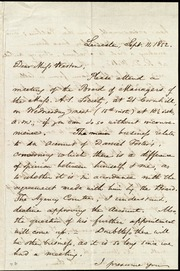 Leicester, Sept. 11, 1852.
Dear Miss Weston,
Please attend a
meeting of the Board of Managers of
the Mass. A. S. Society, at 21 Cornhill
on Wednesday next (15th inst.) at 10 o'clk
a.m., if you can do so without inconve-
nience. The main business relates
to an account of Daniel Foster's,
concerning which there is a difference
of opinion between himself &
as to whether it is in accordance with the
agreement made with him by the Board.
The Agency Comtee, I understand,
decline approving the account. Also
the question of his further appointment
will come up. Doubtless there will
be other business, as it is so long since we
had a meeting.
I presume your